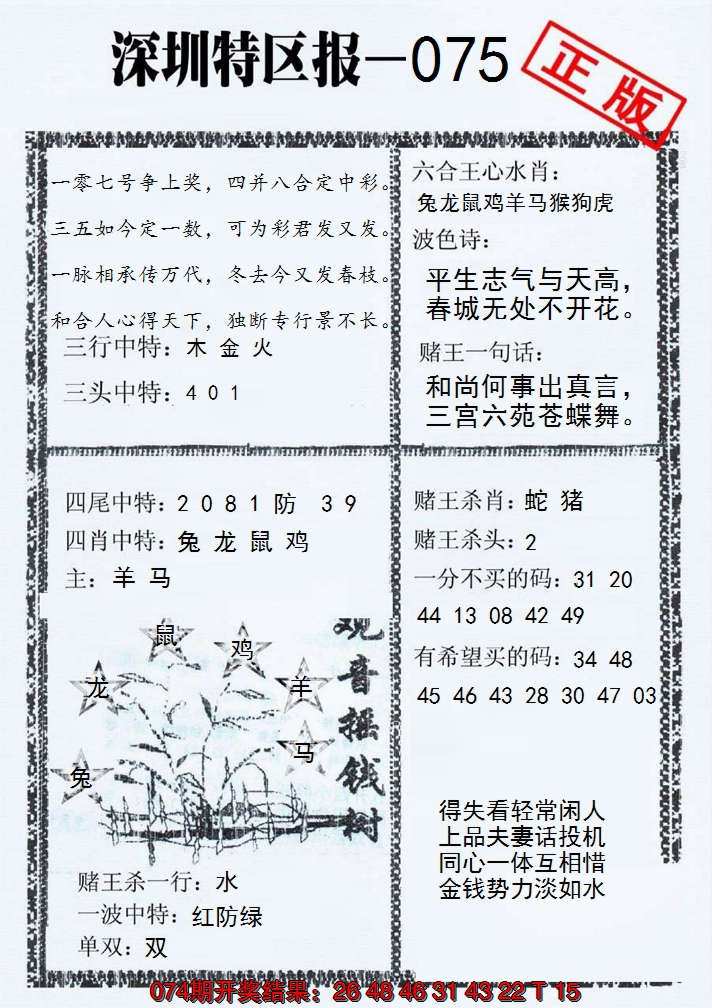 深圳特区报—075
正版
一零七号争上奖，四并八合定中彩。
三五如今定一数，可为彩君发又发。
一脉相承传万代，冬去今又发春枝。
和合人心得天下，独断专行景不长。
三行中特：木 金 火
三头中特：4 0 1
六合王心水肖：
兔龙鼠鸡羊马猴狗虎
波色诗：
平生志气与天高，
春城无处不开花。
赌王一句话：
和尚何事出真言，
三宫六苑苍蝶舞。
四尾中特：2 0 8 1 防 3 9
四肖中特：兔 龙 鼠 鸡
主：羊 马
鼠
鸡
龙
羊
马
兔
观音摇钱树
赌王杀一行：水
一波中特：红防绿
单双：双
赌王杀肖：蛇 猪
赌王杀头：2
一分不买的码：31 20
44 13 08 42 49
有希望买的码：34 48
45 46 43 28 30 47 03
得失看轻常闲人
上品夫妻话投机
同心一体互相惜
金钱势力淡如水
074期开奖结果：26 48 46 31 43 22 T 15